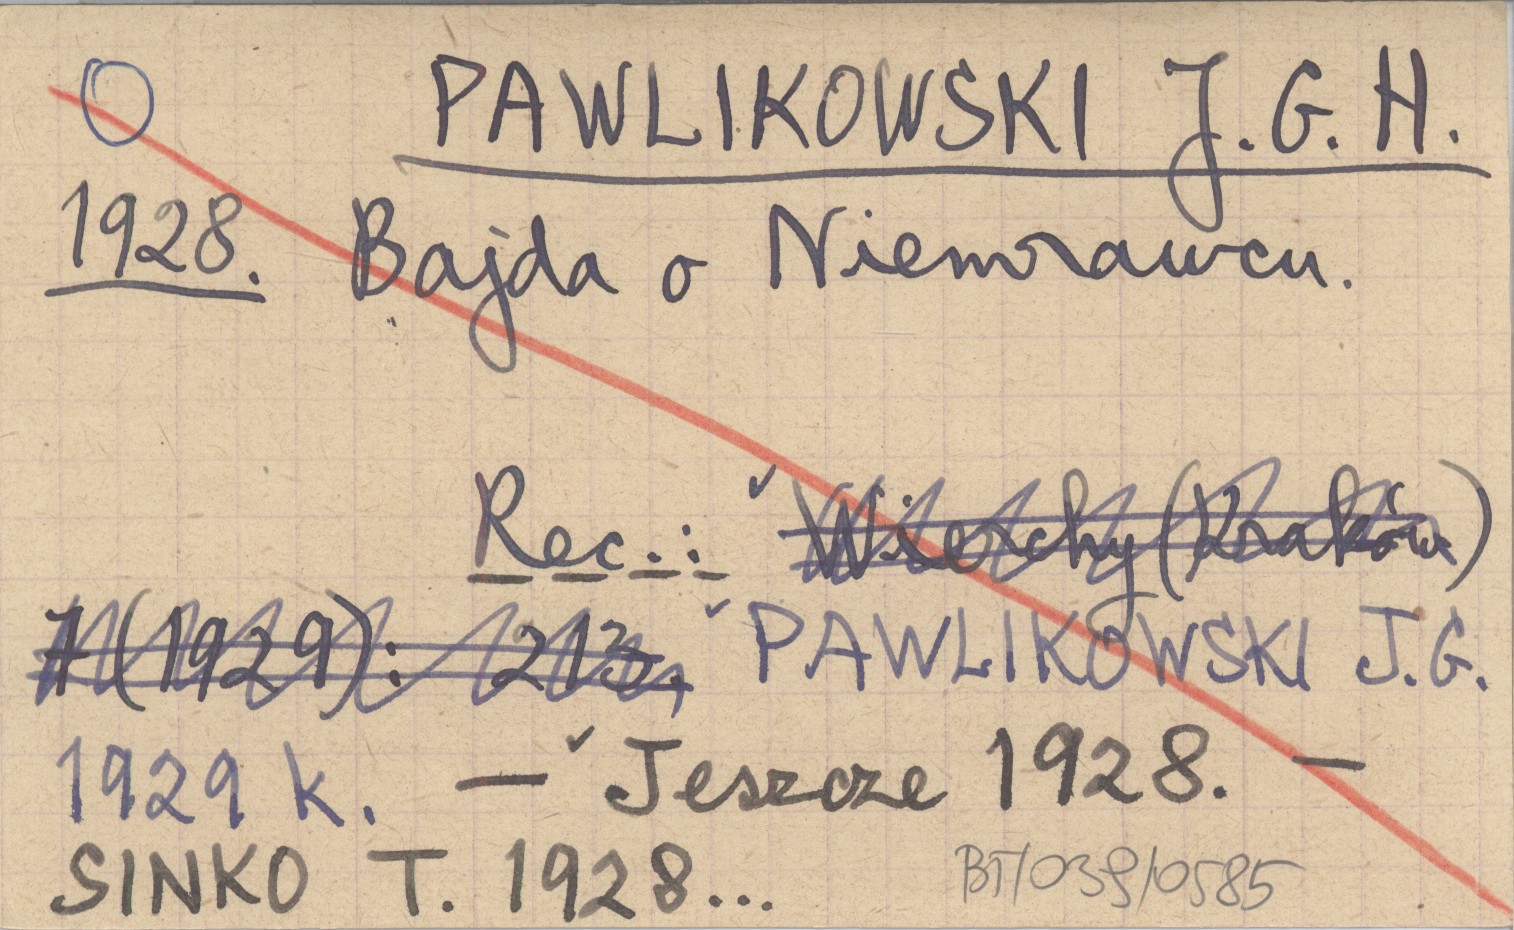 O
PAWLIKOWSKI J.G.H.
1928. Bajda o Niemrawcu.
Rec.: Wierchy (Kraków)
7 (1929): 213, PAWLIKOWSKI J.G.
1929 k. — Jeszcze 1928. —
SINKO T. 1928...
BT/039/0585